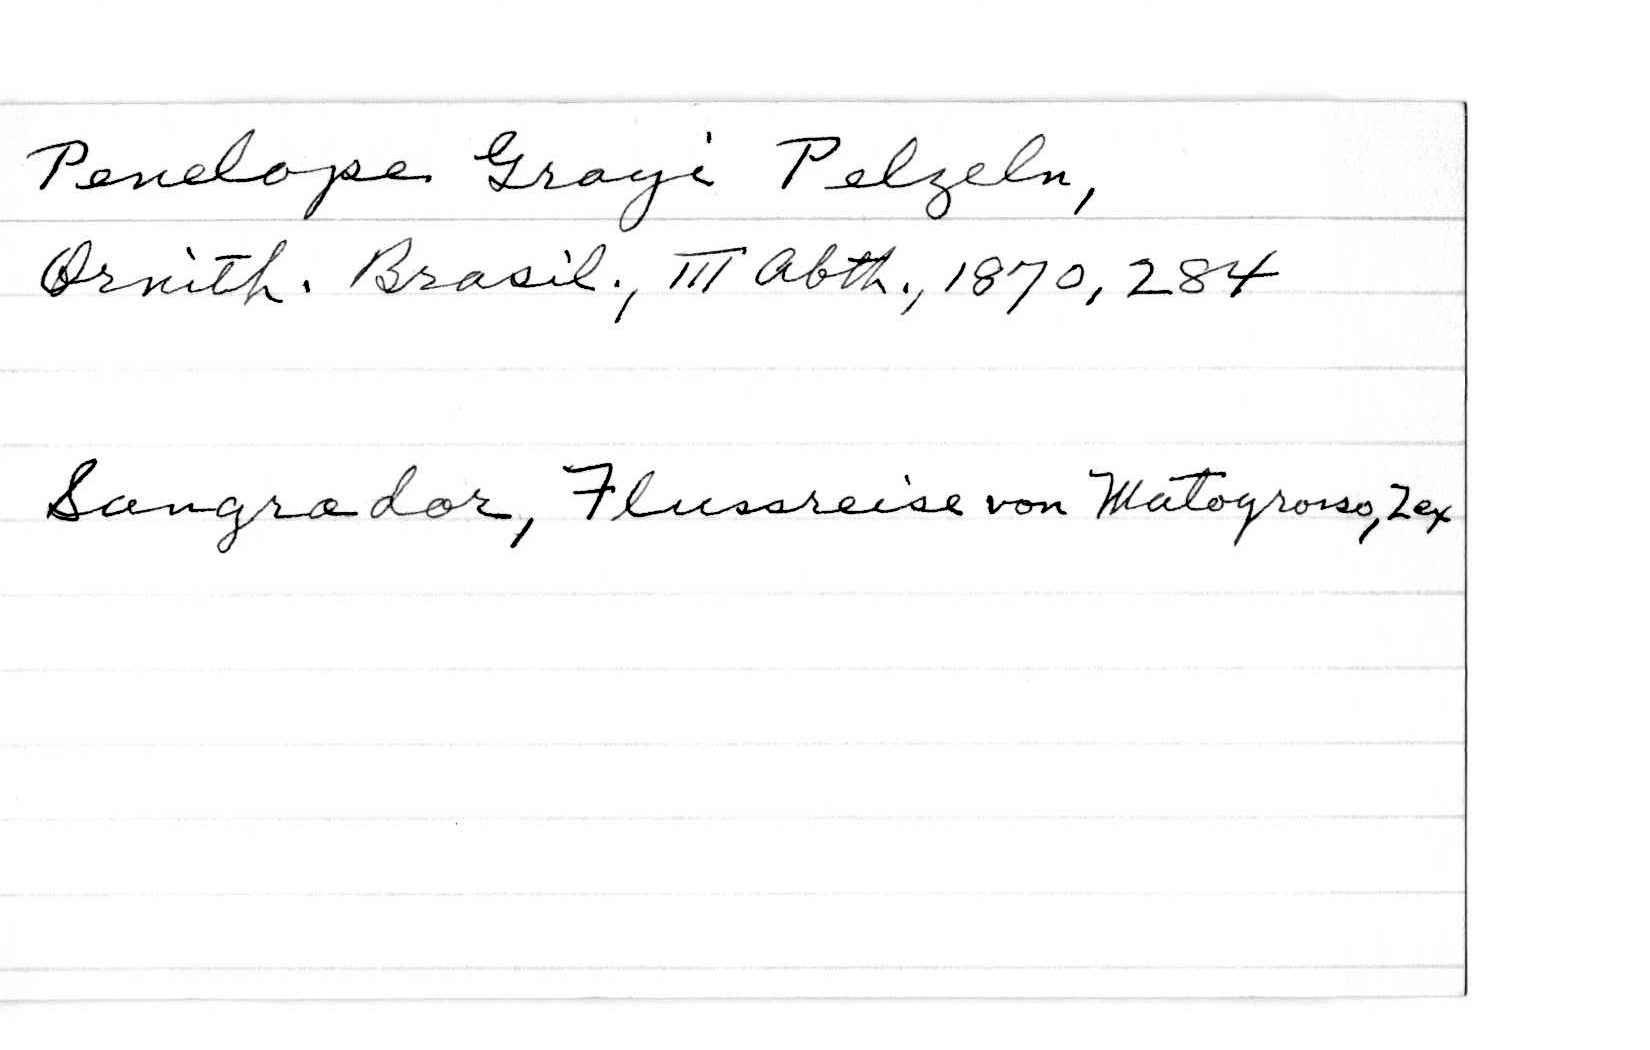 Penelope Grayi Pelzeln,
Ornith. Brasil., III Abth., 1870, 284
Sangrador, Flussreise von Matogrosso, 2 ex